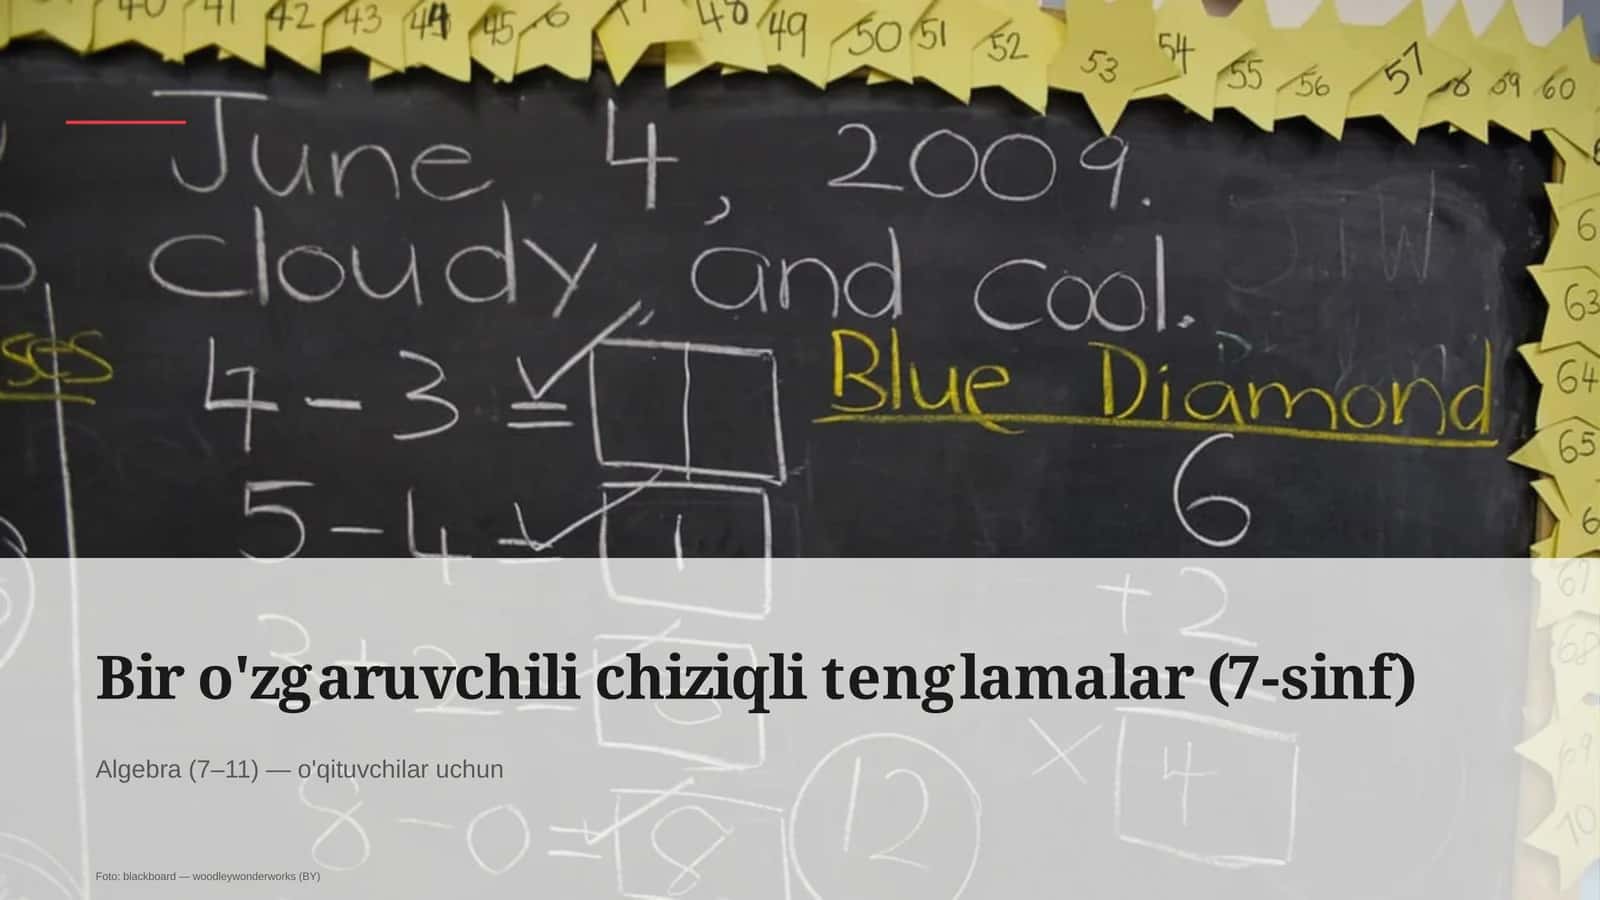 40 41 42 43 44 45 48 49 50 51 52 53 54 55 56 57 58 59 60
June 4, 2009.
Cloudy and cool.
63
64
65
ses
4 - 3 =
Blue Diamond
5 - 4 = 1
6
+ 2
8 - 0 = 8
12
× 4
67
68
69
70
Bir o'zgaruvchili chiziqli tenglamalar (7-sinf)
Algebra (7–11) — o'qituvchilar uchun
Foto: blackboard — woodleywonderworks (BY)